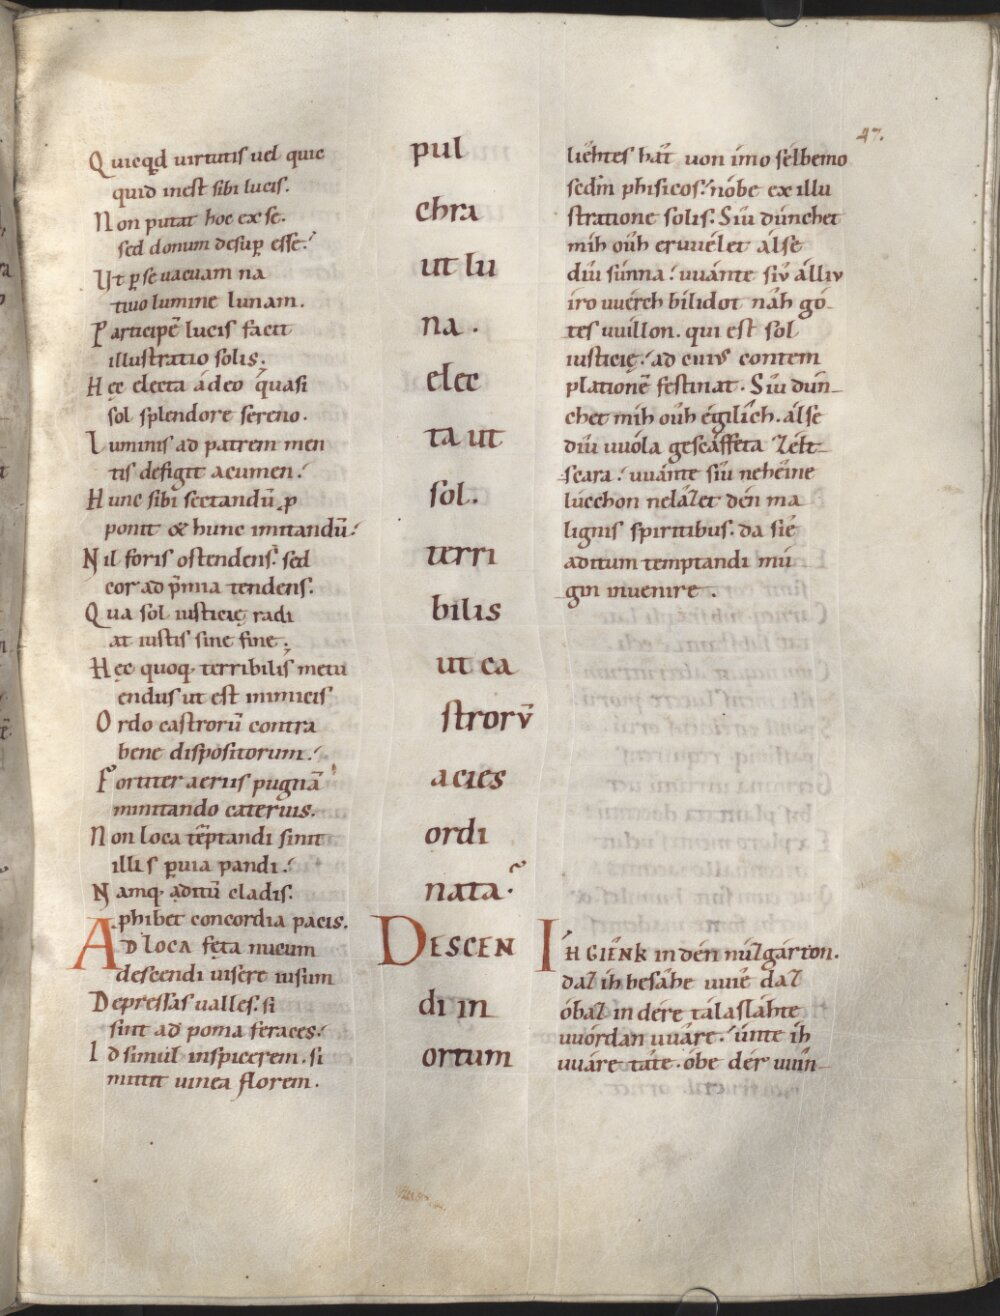 47.
Quicqd uirtutis uel quic
quid inest sibi lucis.
Non putat hoc ex se.
sed donum desup esse.
Ut pse uacuam na
tiuo lumine lunam.
Participē lucis facit
illustratio solis.
Hęc electa adeo quasi
sol splendore sereno.
Luminis ad patrem men
tis defigit acumen.
Hunc sibi sectandū p
ponit & hunc imitandū.
Nil foris ostendens. sed
cor ad pmia tendens.
Qua sol iusticię radi
at iustis sine fine.
Hęc quoq; terribilis metu
endus ut est inimicis
Ordo castrorū contra
bene dispositorum.
Fortiter aeriis pugnā
minitando cateruis.
Non loca tēptandi sinit
illis puia pandi.
Namq; aditū cladis.
phibet concordia pacis.
AD LOCA fęta nucum
descendi uisere iusum
Depressas ualles. si
sint ad poma feraces.
Id simul inspicerem. si
mittit uinea florem.
pul
chra
ut lu
na.
elec
ta ut
sol.
terri
bilis
ut ca
strorv̄
acies
ordi
nata.
DESCEN
di in
ortum
liêhtes hât uon ímo sélbemo
sedm phisicos. nobe ex illu
stratione solis. Siu dúnchet
mih oûh eruuélet álse
diu súnna. uuánte siv álliv
íro uuérch bílidot nâh gó
tes uuíllon. qui est sol
iusticię. ad cuius contem
plationē festinat. Siu dun
chet mih oûh égilîch. álse
diû uuóla gescáffeta zélt
scara. uuánte siu nehêine
lúcchon nelâzet dén ma
lignis spiritibus. da siê
aditum temptandi mú
gin inuenire.
IH GIÊNK in dén núzgárton.
daz ih besâhe uuîe daz
óbaz in dére tálaslâhte
uuórdan uuâre. únte ih
uuáre tâte. óbe dér uuîn